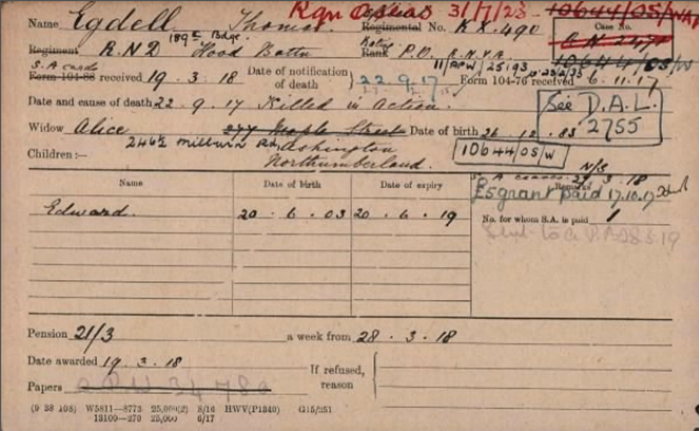 Name Egdell Thomas Regimental No. KX.490 10644/OS/W
31/7/23
Case No.
189th Bdge
Regiment R.N.D Hood Battn Rank P.O. R.N.V.R. 10644/OS/W
S.A. cards 11/ 25193
Form 104-88 received 19.3.18 Date of notification of death 22.9.17 Form 104-76 received 6.11.17
Date and cause of death 22.9.17 Killed in Action.
See D.A.L. 2755
Widow Alice 277 Maple Street Date of birth 26.12.83
Children:— Ashington
Northumberland. 10644/OS/W
N/S
S.A. 27.3.18
Name Date of birth Date of expiry Remarks
£5 grant paid 17.10.17
Edward. 20.6.03 20.6.19 No. for whom S.A. is paid 1
Sent to
Pension 21/3 a week from 28.3.18
Date awarded 19.3.18 If refused, reason
Papers
(9 38 105) W5811—8773 25,000(2) 8/16 HWV(P1340) G15/251
13109—270 25,000 6/17